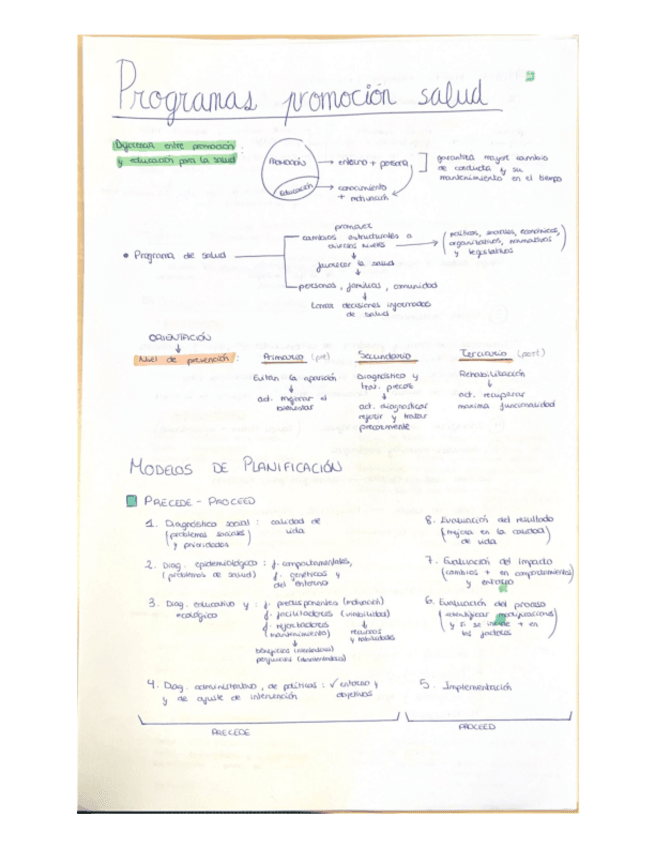 Programas promoción salud
Diferencia entre promoción
y educación para la salud :
PROMOCIÓN → entorno + persona
EDUCACIÓN → conocimiento
+ motivación
garantiza mayor cambio
de conducta y su
mantenimiento en el tiempo
• Programa de salud
promover
cambios estructurales a
diversos niveles
→ (políticos, sociales, económicos,
organizativos, normativos
y legislativos)
↓
favorecer la salud
↓
personas, familias, comunidad
↓
tomar decisiones informadas
de salud
ORIENTACIÓN
↓
Nivel de prevención :
Primario (pre)
Evitan la aparición
↓
act. mejorar el
bienestar
Secundario
Diagnóstico y
trat. precoz
↓
act. diagnosticar
y tratar
precozmente
Terciario (post)
Rehabilitación
↓
act. recuperar
máxima funcionalidad
MODELOS DE PLANIFICACIÓN
PRECEDE - PROCEED
1. Diagnóstico social : calidad de
vida
(problemas sociales)
y prioridades
2. Diag. epidemiológico : f. comportamentales,
(problemas de salud) f. genéticos y
del entorno
3. Diag. educativo y : f. predisponentes (motivación)
ecológico f. facilitadores (viabilidad)
f. reforzadores ↓
(mantenimiento) recursos
y habilidades
↓
beneficios
perjuicios
4. Diag. administrativo, de políticas : √ entorno y
y de ajuste de intervención objetivos
8. Evaluación del resultado
(mejora en la calidad)
de vida
7. Evaluación del impacto
(cambios + en comportamientos)
y entorno
6. Evaluación del proceso
y si se incide + en
los factores
5. Implementación
PRECEDE
PROCEED